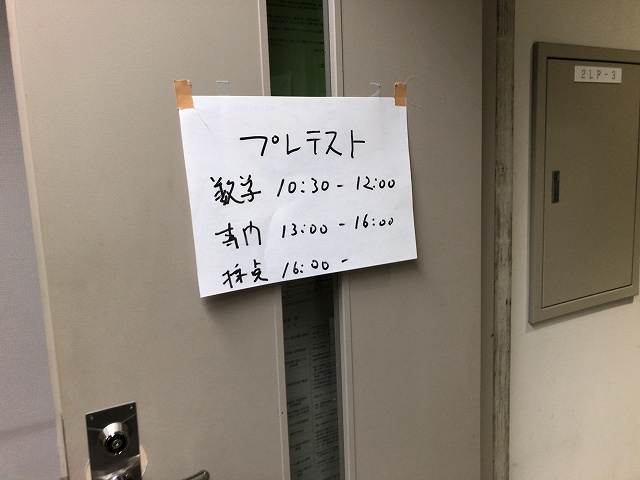 プレテスト
数学 10:30 - 12:00
専門 13:00 - 16:00
採点 16:00 -
2LP-3